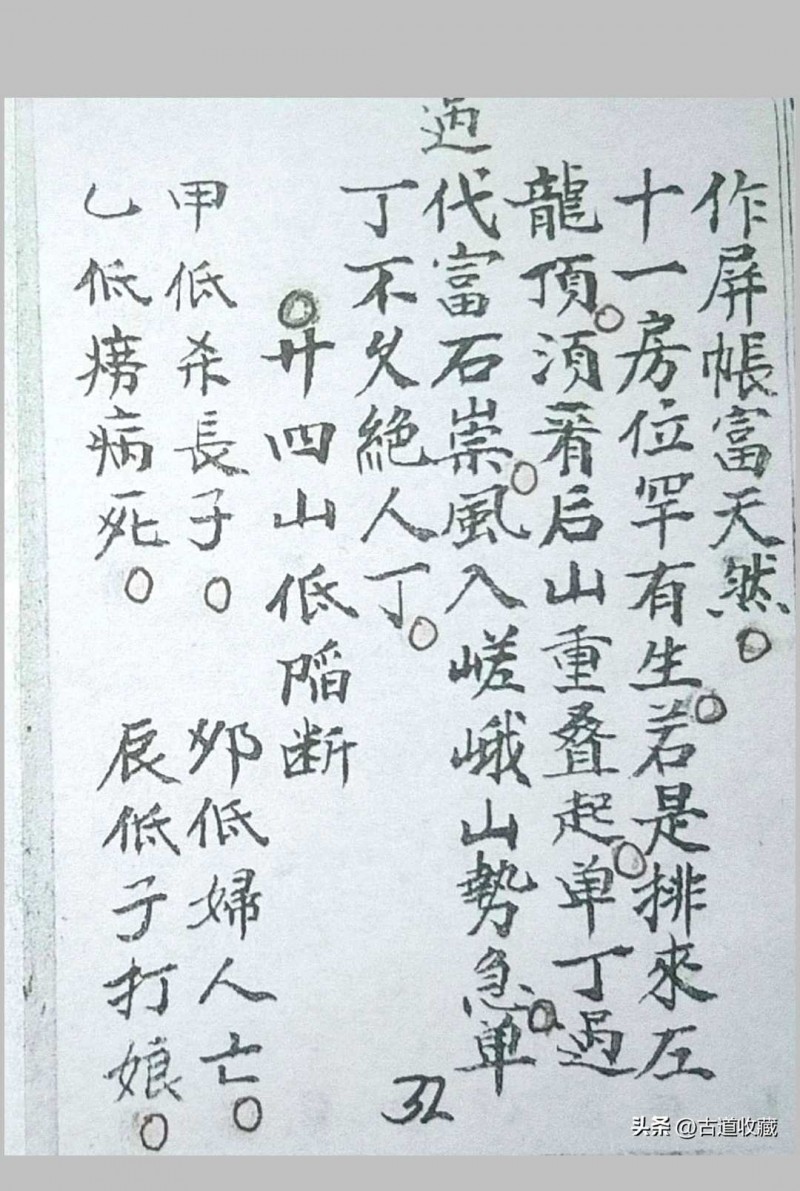 作屏帳富天然。
十一房位罕有生。若是排來左
龍頂。須看后山重叠起。单丁過
過
代富石崇。風入嵯峨山勢急。单
丁不久絕人丁。
。廿四山低陷断
甲低杀長子。 卯低婦人亡。
乙低癆病死。 辰低子打娘。
32
头条 @古道收藏